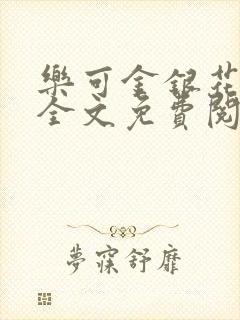 樂可金銀花
全文免費閱
夢寐舒靡